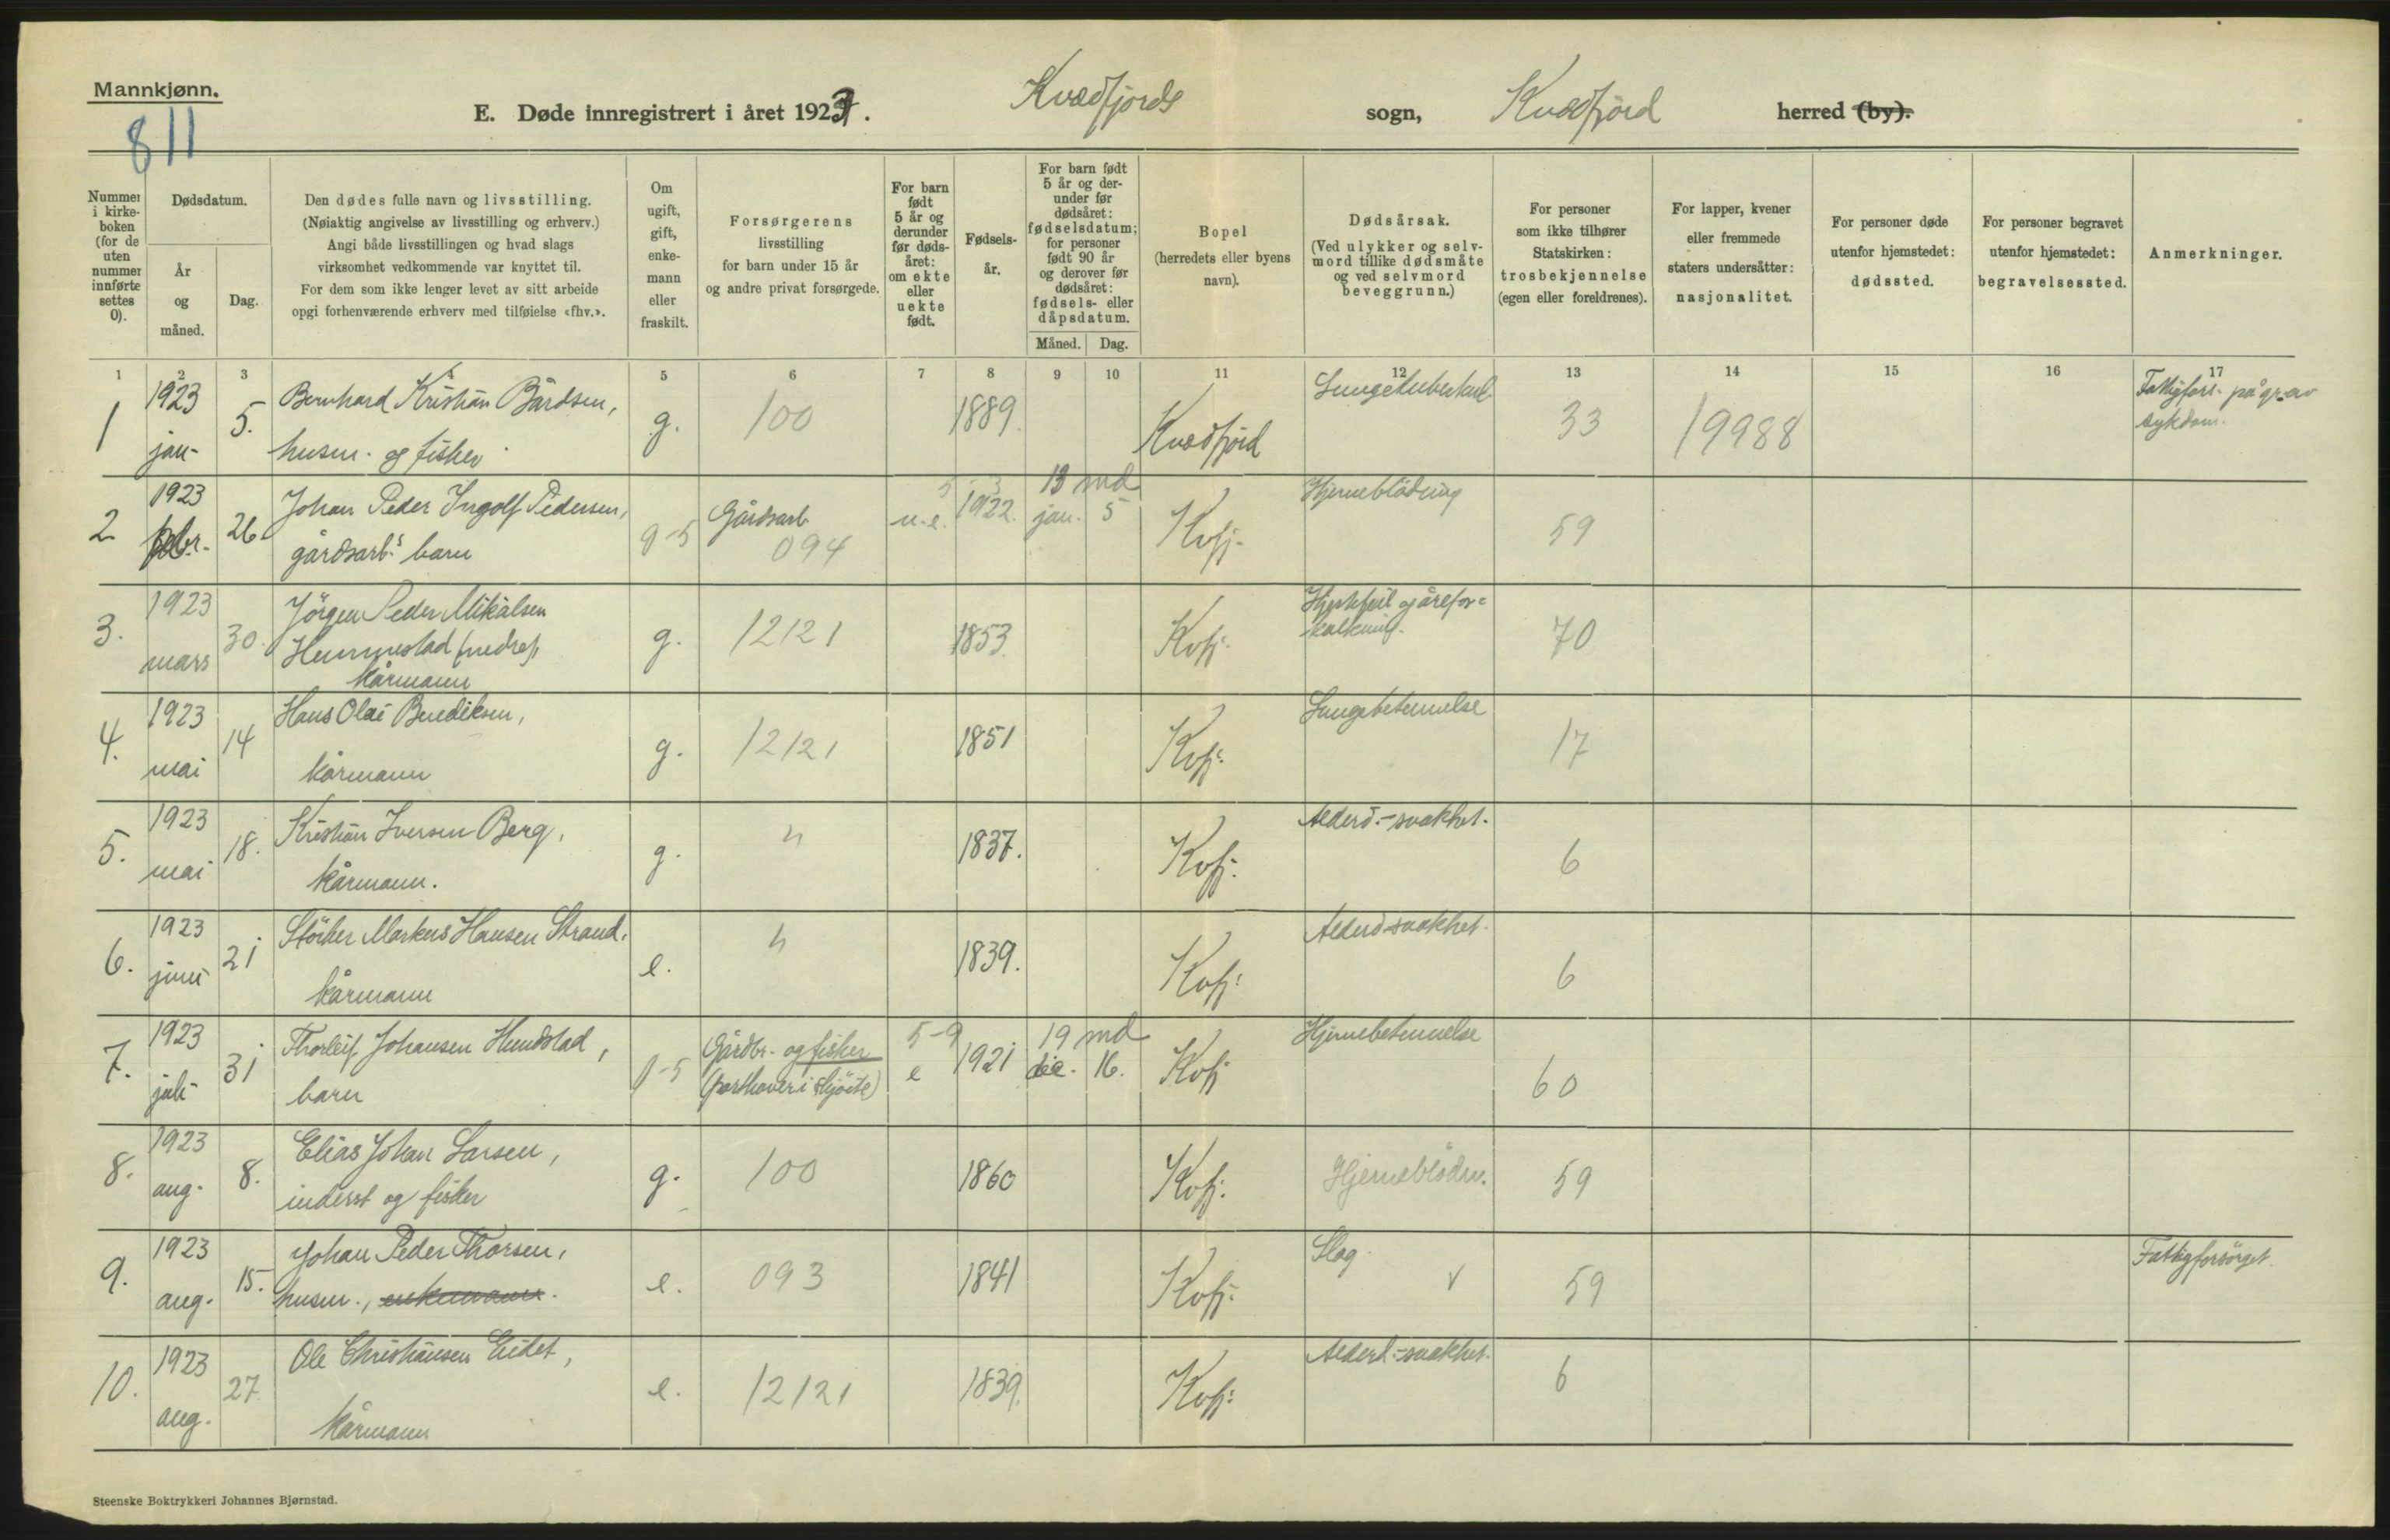 Mannkjønn.
811
E. Døde innregistrert i året 1923.
Kvædfjords sogn, Kvædfjord herred (by).
Nummer i kirke-boken (for de uten nummer innførte settes 0).
Dødsdatum.
År og måned.
Dag.
Den dødes fulle navn og livsstilling.
(Nøiaktig angivelse av livsstilling og erhverv.)
Angi både livsstillingen og hvad slags
virksomhet vedkommende var knyttet til.
For dem som ikke lenger levet av sitt arbeide
opgi forhenværende erhverv med tilføielse «fhv.».
Om ugift, gift, enke-mann eller fraskilt.
Forsørgerens
livsstilling
for barn under 15 år
og andre privat forsørgede.
For barn født 5 år og derunder før døds-året: om ekte eller uekte født.
Fødsels-år.
For barn født 5 år og der-under før dødsåret: fødselsdatum; for personer født 90 år og derover før dødsåret: fødsels- eller dåpsdatum.
Måned. Dag.
Bopel
(herredets eller byens
navn).
Dødsårsak.
(Ved ulykker og selv-
mord tillike dødsmåte
og ved selvmord
beveggrunn.)
For personer
som ikke tilhører
Statskirken:
trosbekjennelse
(egen eller foreldrenes).
For lapper, kvener
eller fremmede
staters undersåtter:
nasjonalitet.
For personer døde
utenfor hjemstedet:
dødssted.
For personer begravet
utenfor hjemstedet:
begravelsessted.
Anmerkninger.
1 2 3 4 5 6 7 8 9 10 11 12 13 14 15 16 17
1 1923 jan- 5. Bernhard Kristian Bårdsen, husm. og fisker g. 100 1889. Kvædfjord Lungetuberkul. 33 19988 Fattigfors. på gr. av sykdom.
2 1923 febr. 26 Johan Peder Ingolf Pedersen, gårdsarb.s barn 0-5 Gårdsarb. 094 u.e. 5-3 1922. 13 md jan. 5 Kvfj. Hjerneblödning 59
3. 1923 mars 30. Jörgen Peder Mikalsen Hemmestad nedre, kårmann g. 12121 1853. Kvfj. Hjertefeil og årefor=kalkning. 70
4. 1923 mai 14 Hans Olai Bendiksen, kårmann g. 12121 1851 Kvfj. Lungebetennelse 17
5. 1923 mai 18. Kristian Iversen Berg, kårmann. g. " 1837. Kvfj. Alderd.-svakhet. 6
6. 1923 juni 21 Störker Markus Hansen Strand, kårmann e. " 1839. Kvfj. Alderd-svakhet. 6
7. 1923 juli 31 Thorleif Johansen Hundstad, barn 0-5 Gårdbr. og fisker (parthaver i skjöite) 5-9 e 1921 19 md dec. 16. Kvfj Hjernebetennelse 60
8. 1923 aug. 8. Elias Johan Larsen, inderst og fisker g. 100 1860 Kvfj. Hjerneblödn. 59
9. 1923 aug. 15. Johan Peder Thorsen, husm., enkemann. e. 093 1841 Kvfj. Slag v 59 Fattigforsörget.
10. 1923 aug. 27 Ole Christiansen Eidet, kårmann e. 12121 1839. Kvfj. Alderd.-svakhet. 6
Steenske Boktrykkeri Johannes Bjørnstad.